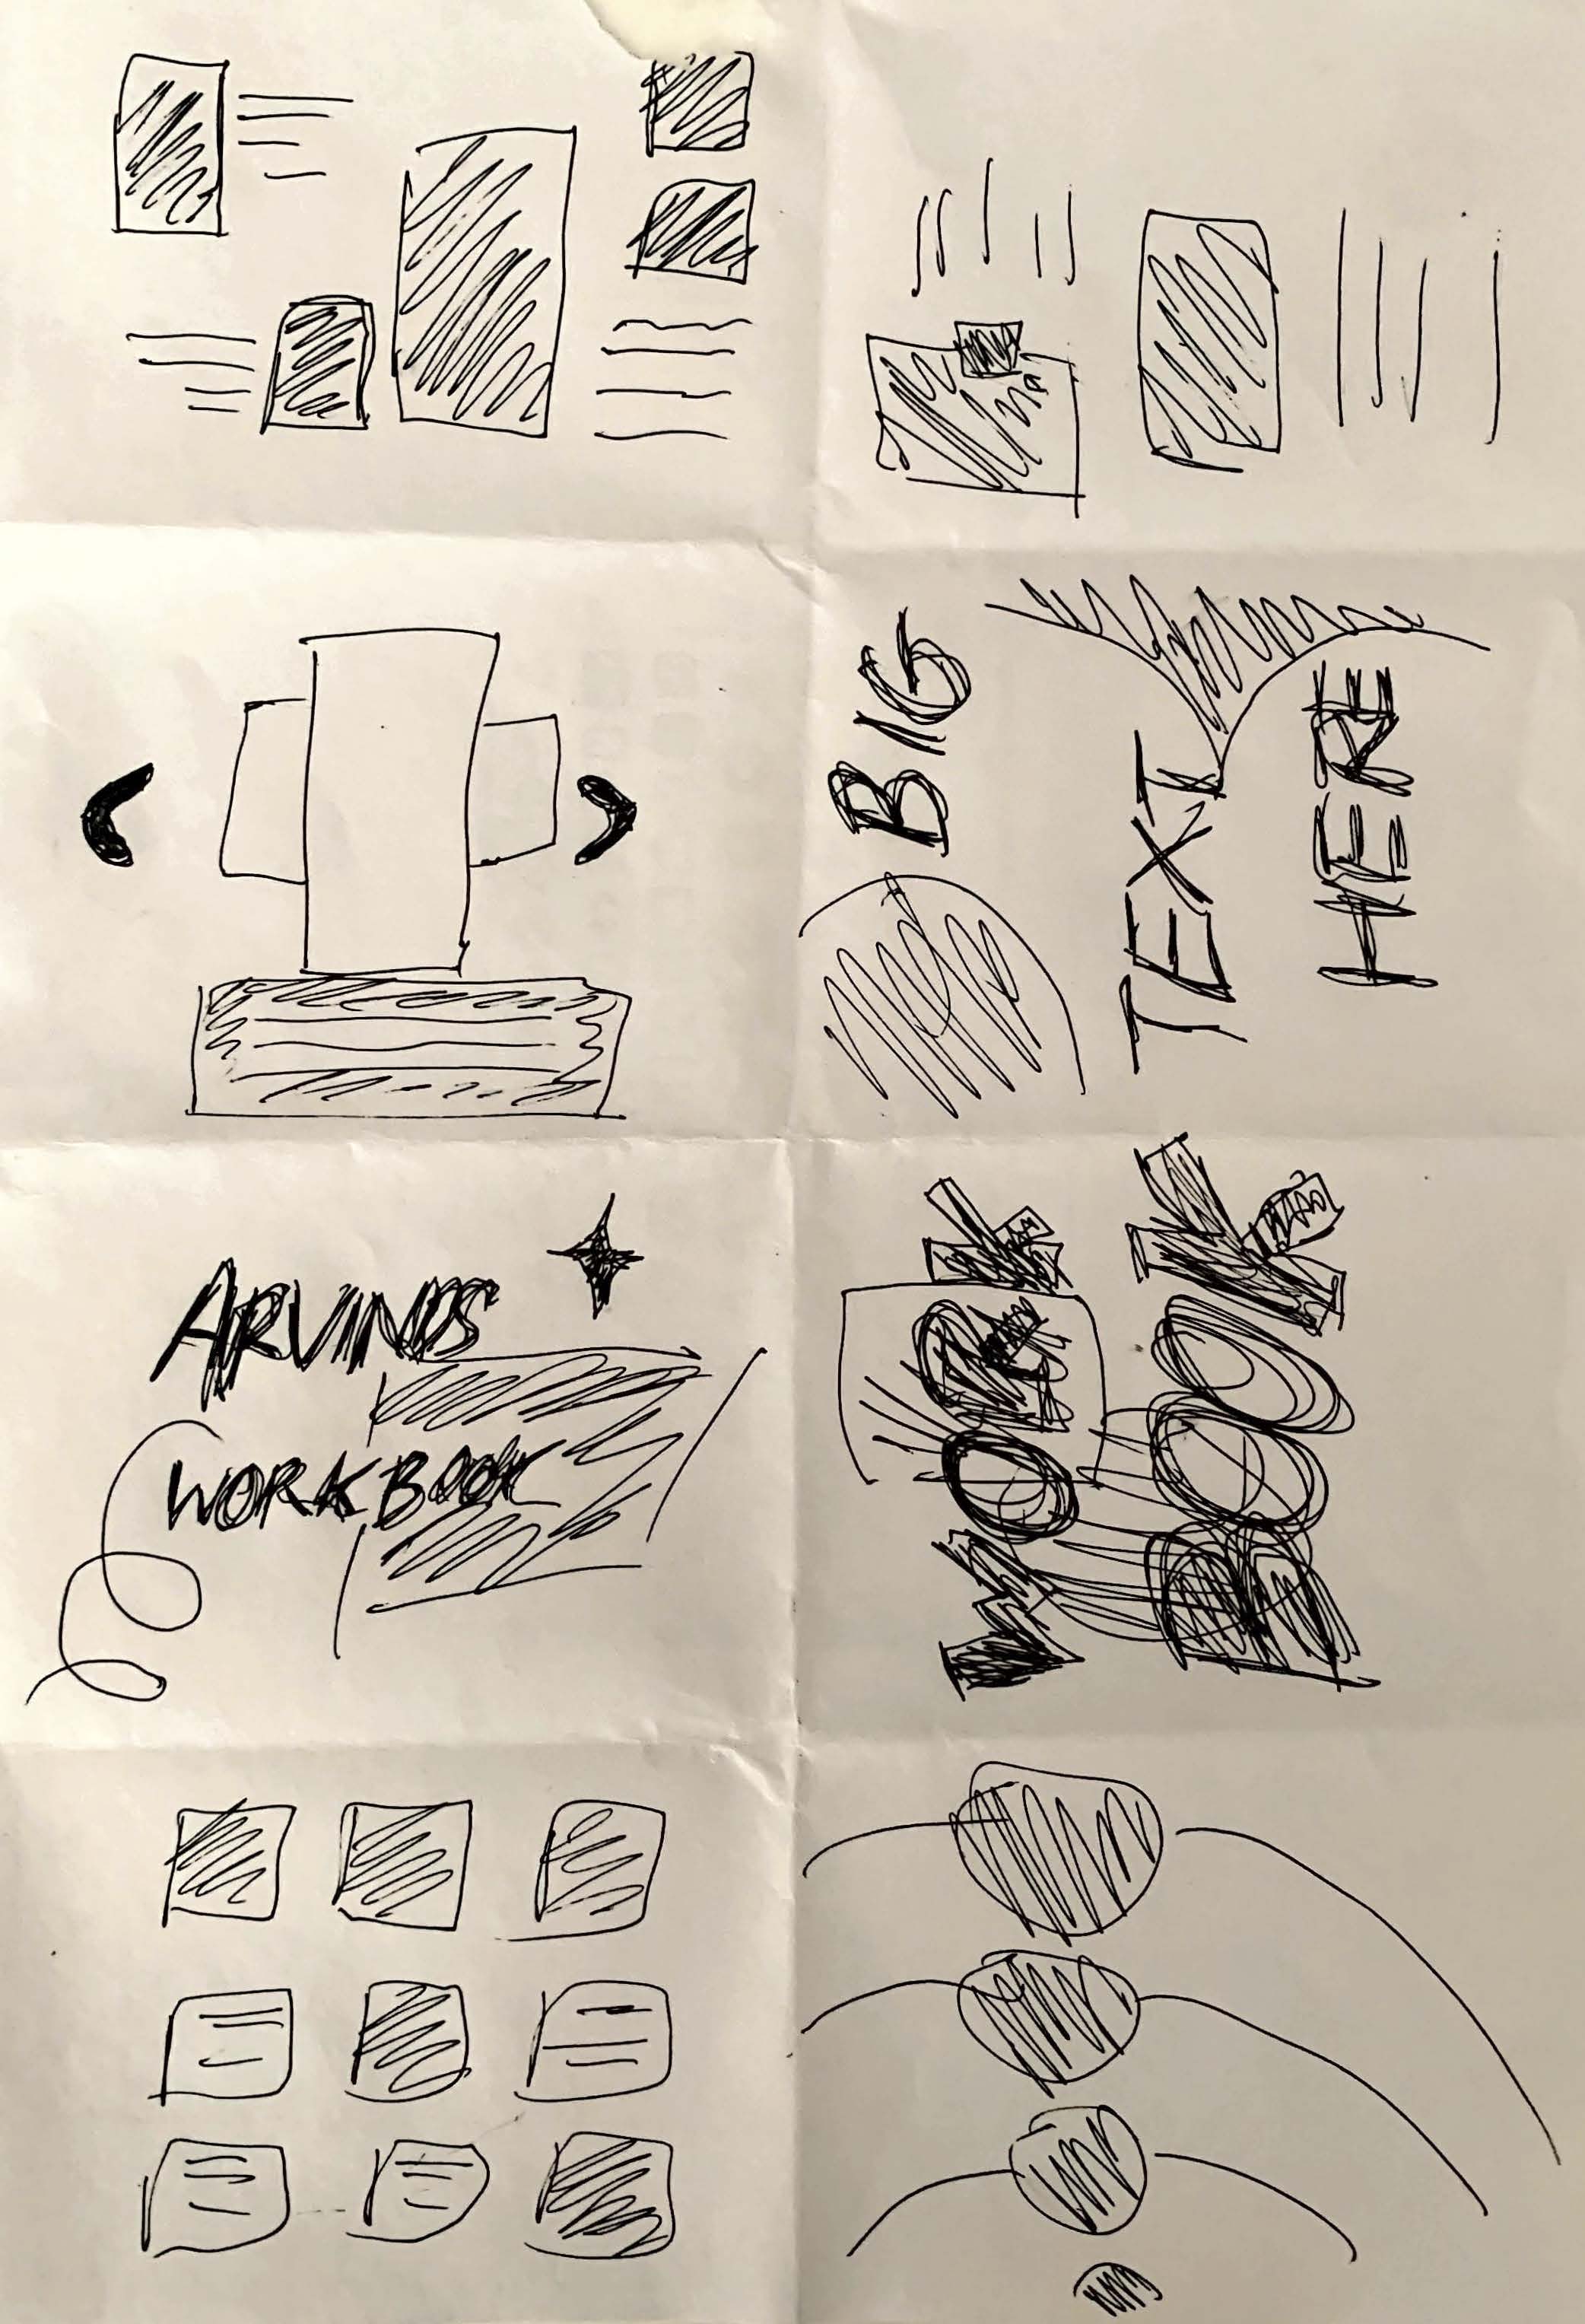 BIG
TEXT
HERE
ARVINDS
WORKBOOK
WORK
BOOK